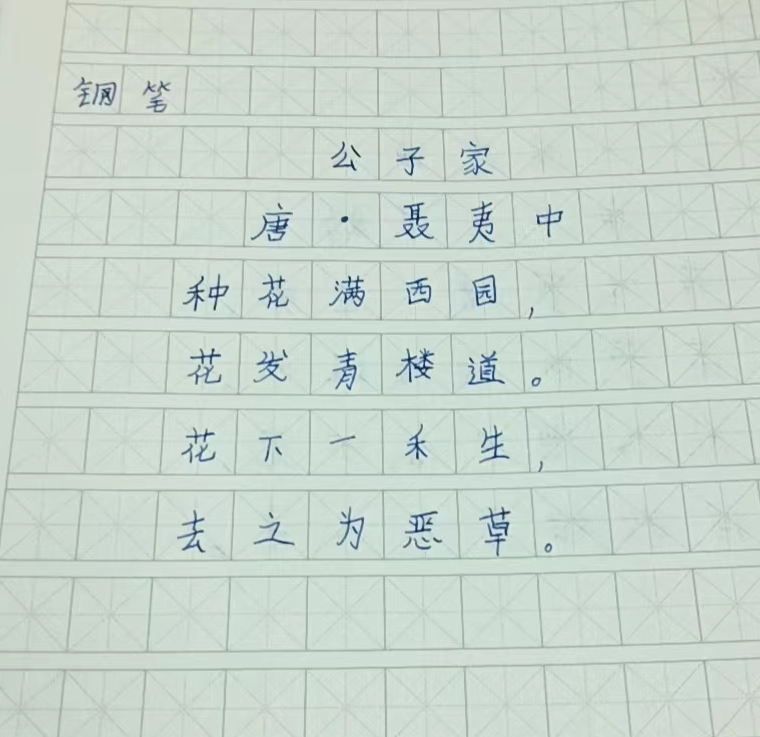 钢笔
公子家
唐·聂夷中
种花满西园,
花发青楼道。
花下一禾生,
去之为恶草。